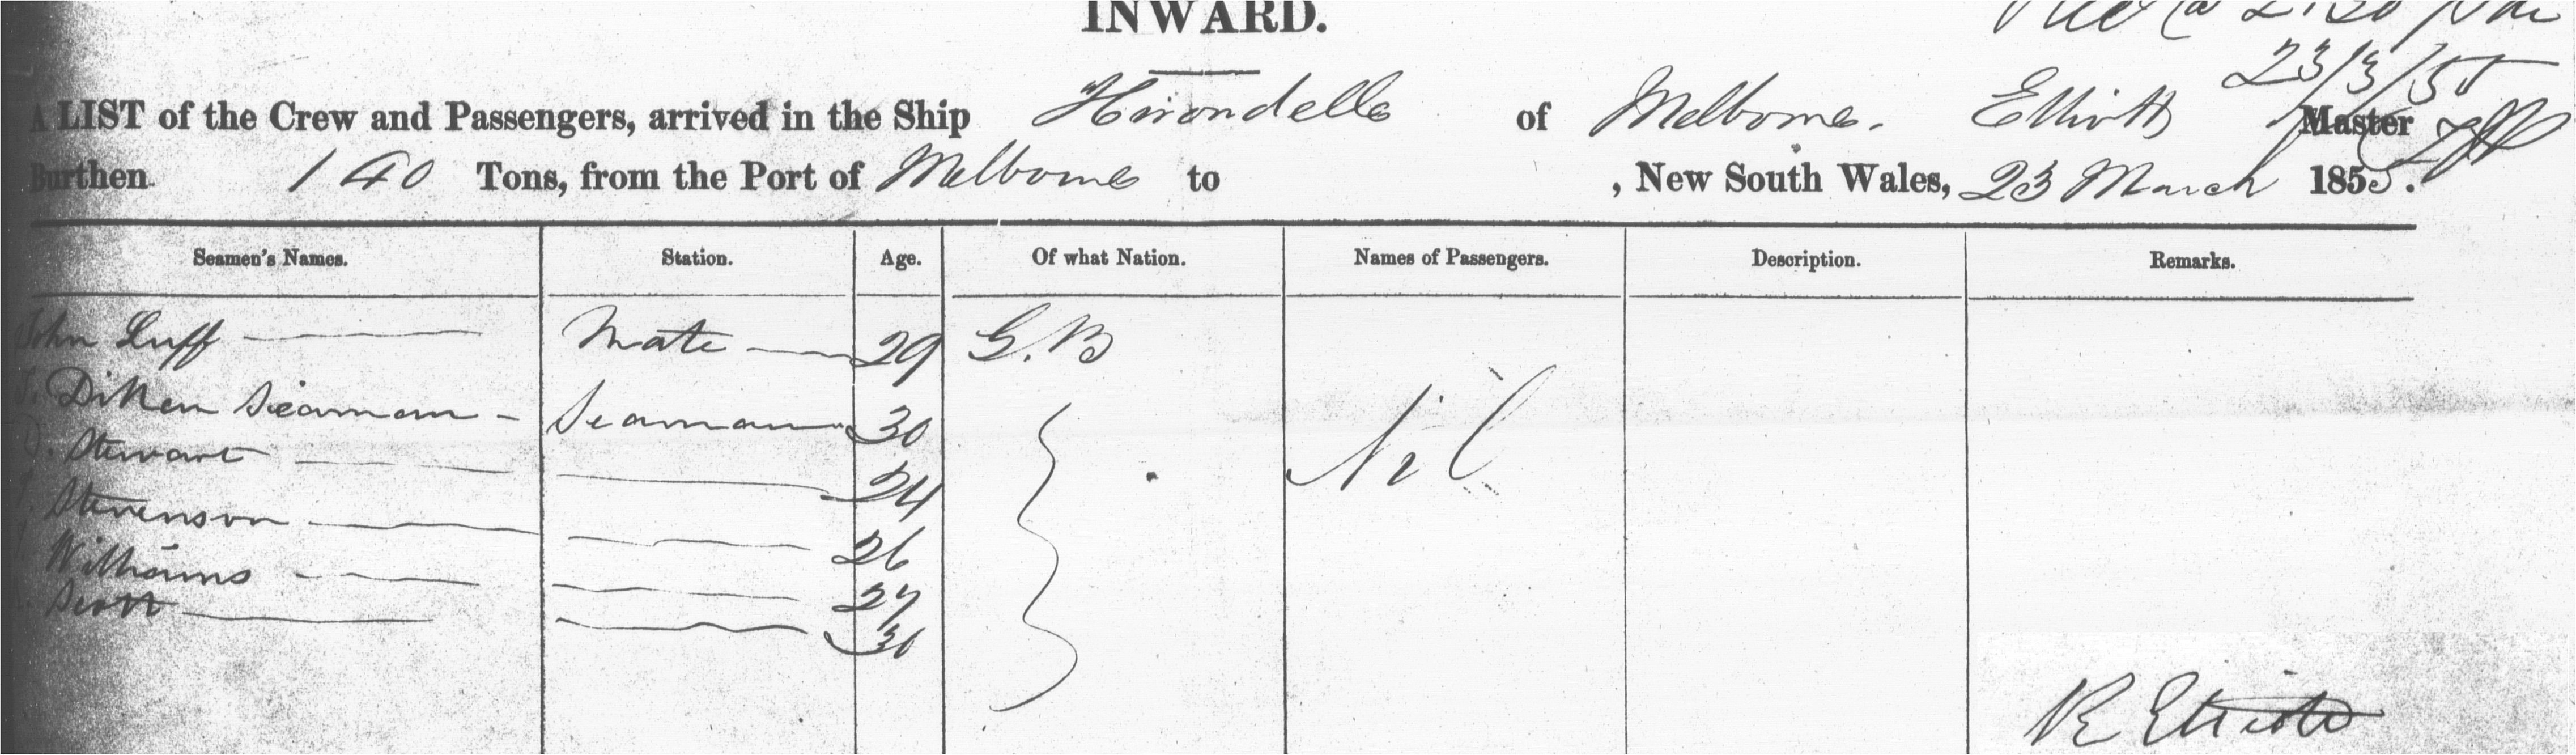 INWARD.
Recd @ 2.30 pm
23/3/55
A LIST of the Crew and Passengers, arrived in the Ship Hirondelle of Melborne. Elliott Master
Burthen 140 Tons, from the Port of Melborne to , New South Wales, 23 March 1855.
Seamen's Names. Station. Age. Of what Nation. Names of Passengers. Description. Remarks.
John Luff Mate 29 G.B
Diken Seaman - Seaman 30
Stewart 24 Nil
Stevenson 26
Williams 27
Scott 30
R Elliott